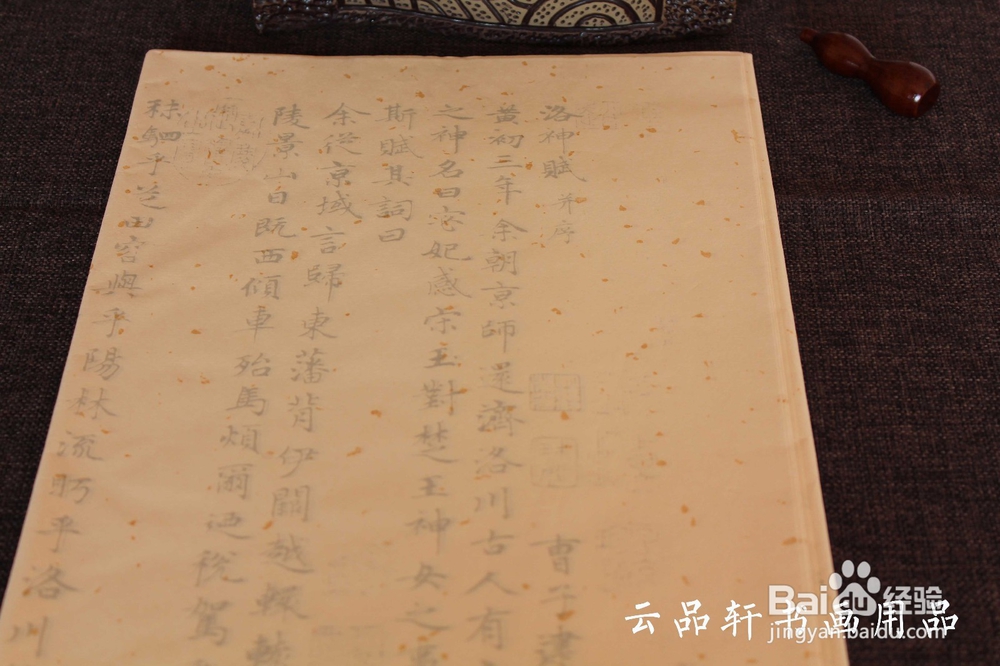 洛神賦 并序 曹子建
黃初三年余朝京師還濟洛川古人有
之神名曰宓妃感宋玉對楚王神女之事
斯賦其詞曰
余從京域言歸東藩背伊闕越轘轅
陵景山日既西傾車殆馬煩爾迺稅駕
秣駟乎芝田容與乎陽林流眄乎洛川
Baidu经验
jingyan.baidu.com
云品轩书画用品